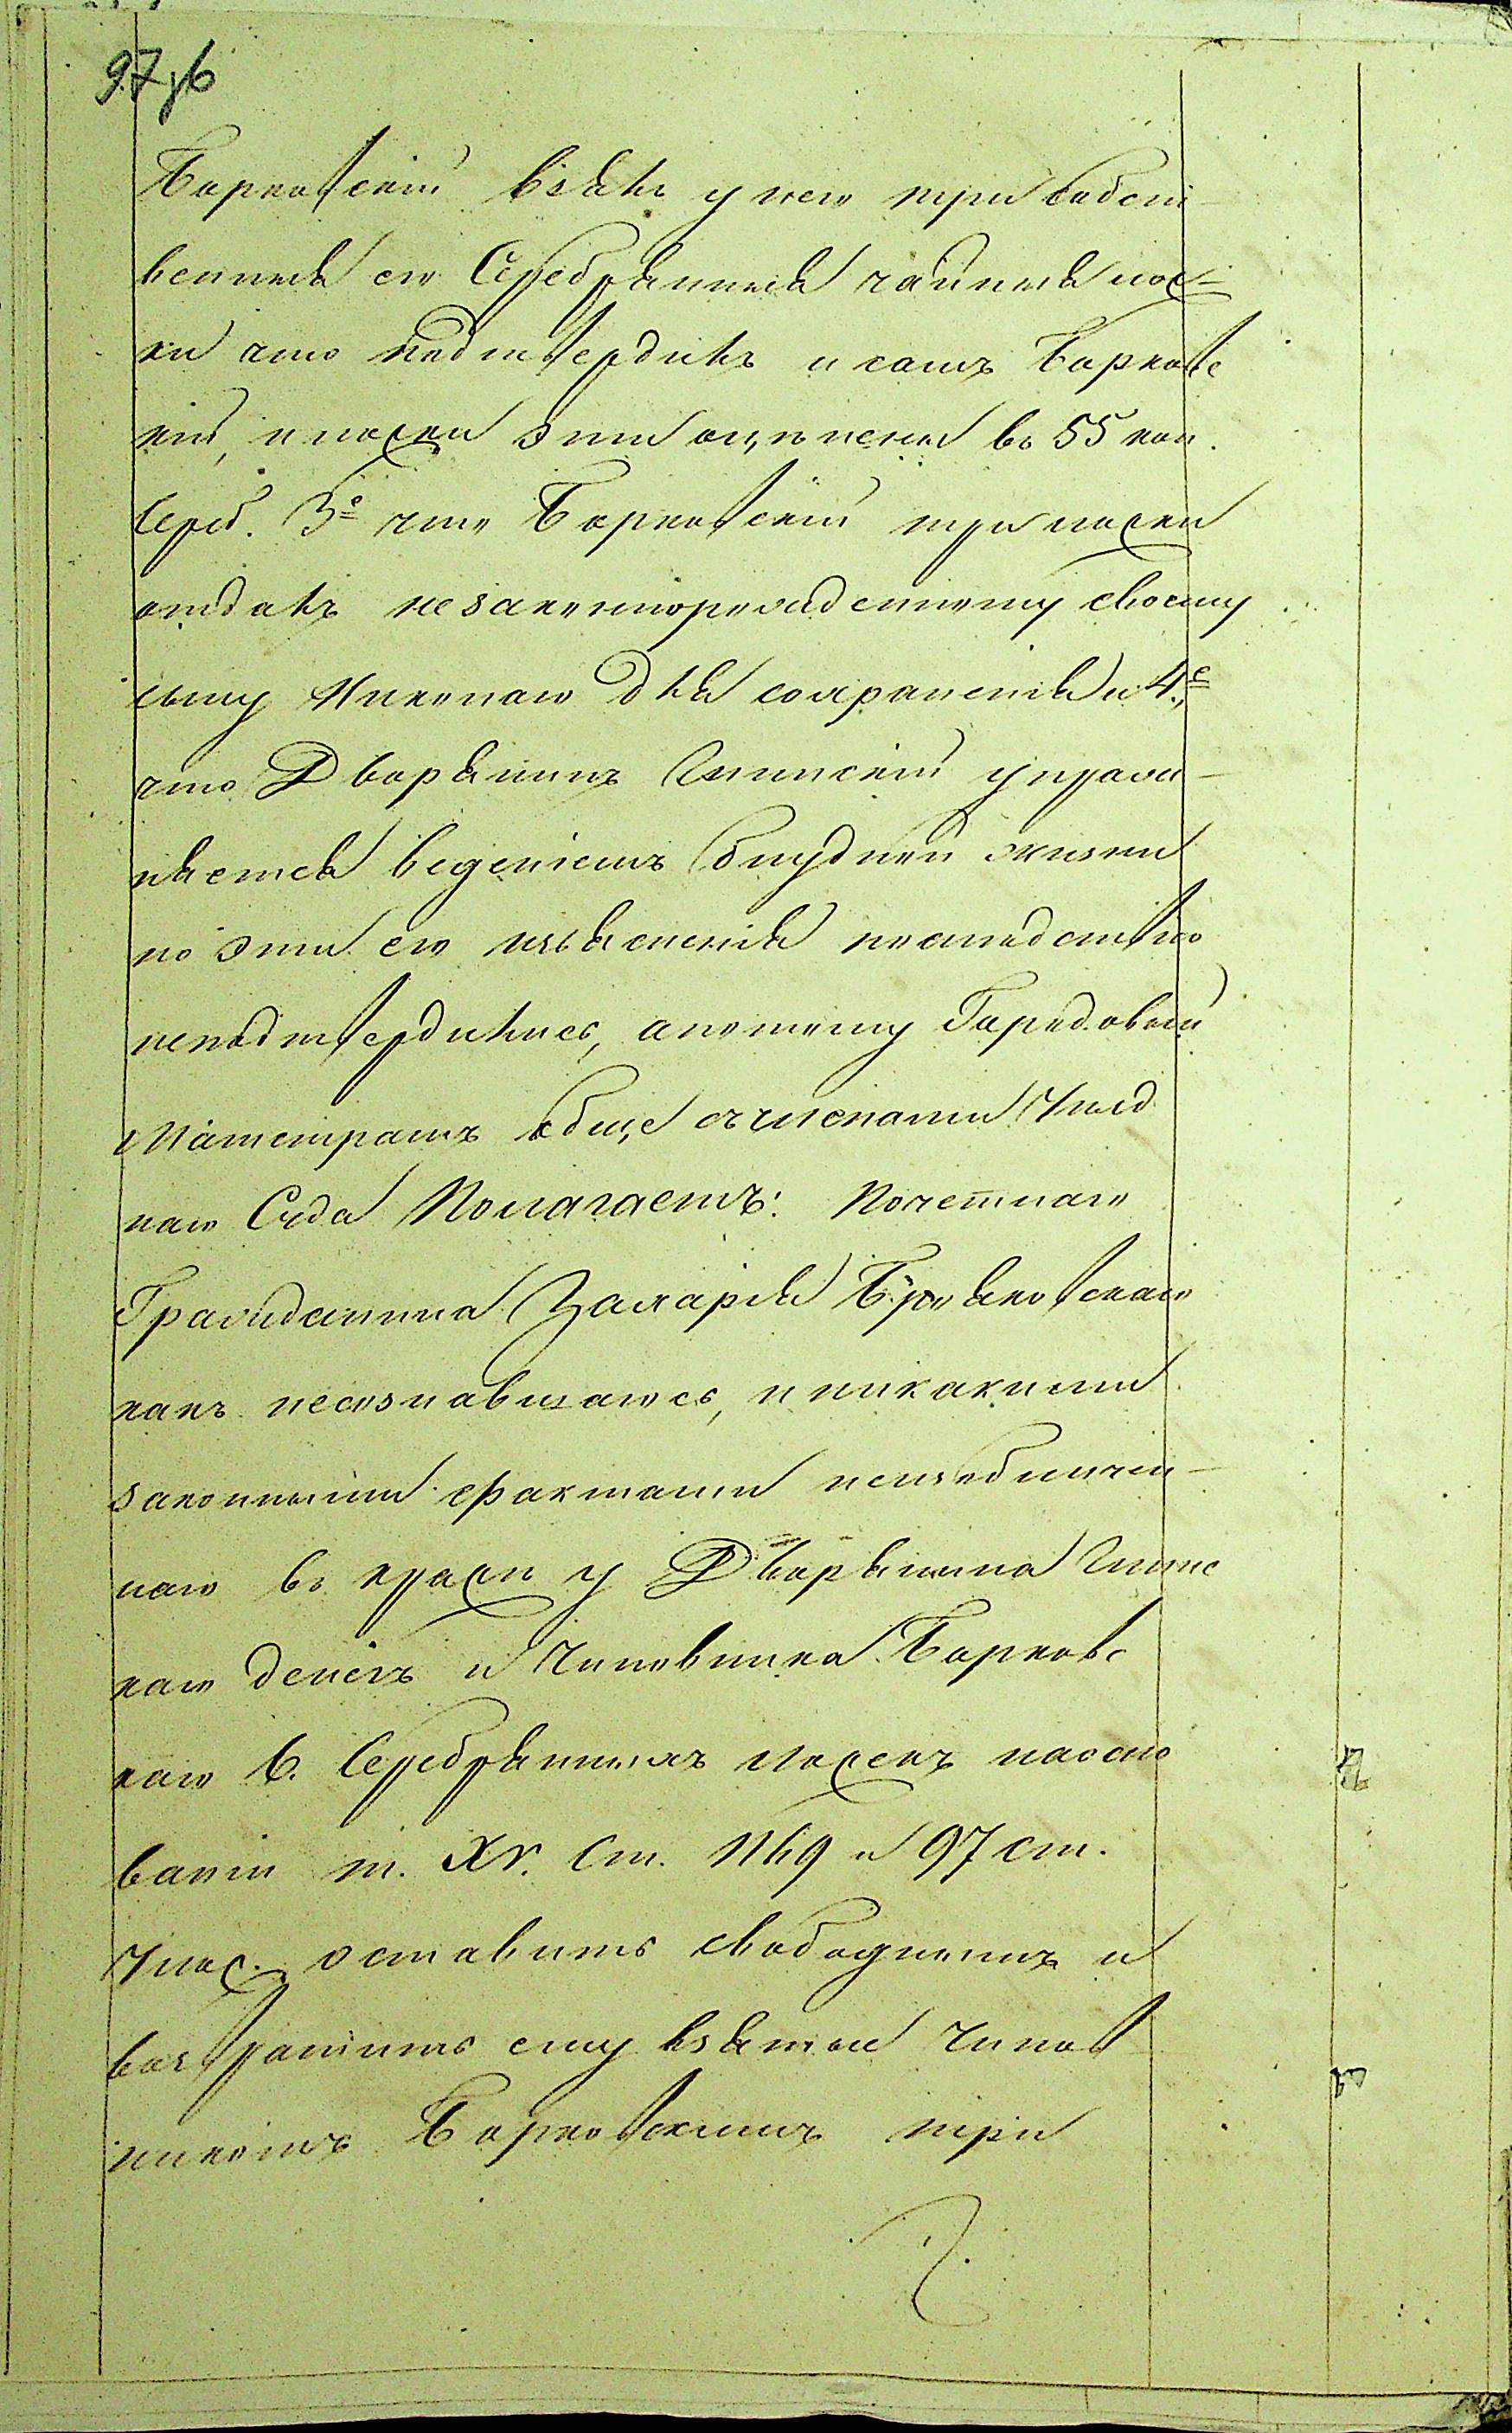 97 зв
Барковскій взялъ у него три собст-
венныя его Серебрянныя чайныя лож-
ки что подтвердилъ и самъ Барковс
кій, и ложки эти оцѣнены въ 55 коп.
Сереб. 3е что Барковскій три ложки
отдалъ незаконнорожденному своему
сыну Николаю для сохраненія и 4.е
что Дворянинъ упраж-
няется веденіемъ блудной жизни
но эти его изъясненія послѣдствію
неподтвердились, а потому Городовый
Магистратъ обще съ членами Уѣзд
наго Суда Полагаетъ: Почетнаго
Гражданина Захарія
какъ несознавшагося, и никакими
законными фактами неизобличен-
наго въ кражи у Дворянина
каго денегъ и Чиновника Барковс
каго 6. Серебрянныхъ Ложекъ на осно
ваніи т. XV. Ст. 1169 и 97 ст.
Улож. оставить свободнымъ и
возвратить ему взятыя Чинов
никомъ Барковскимъ три